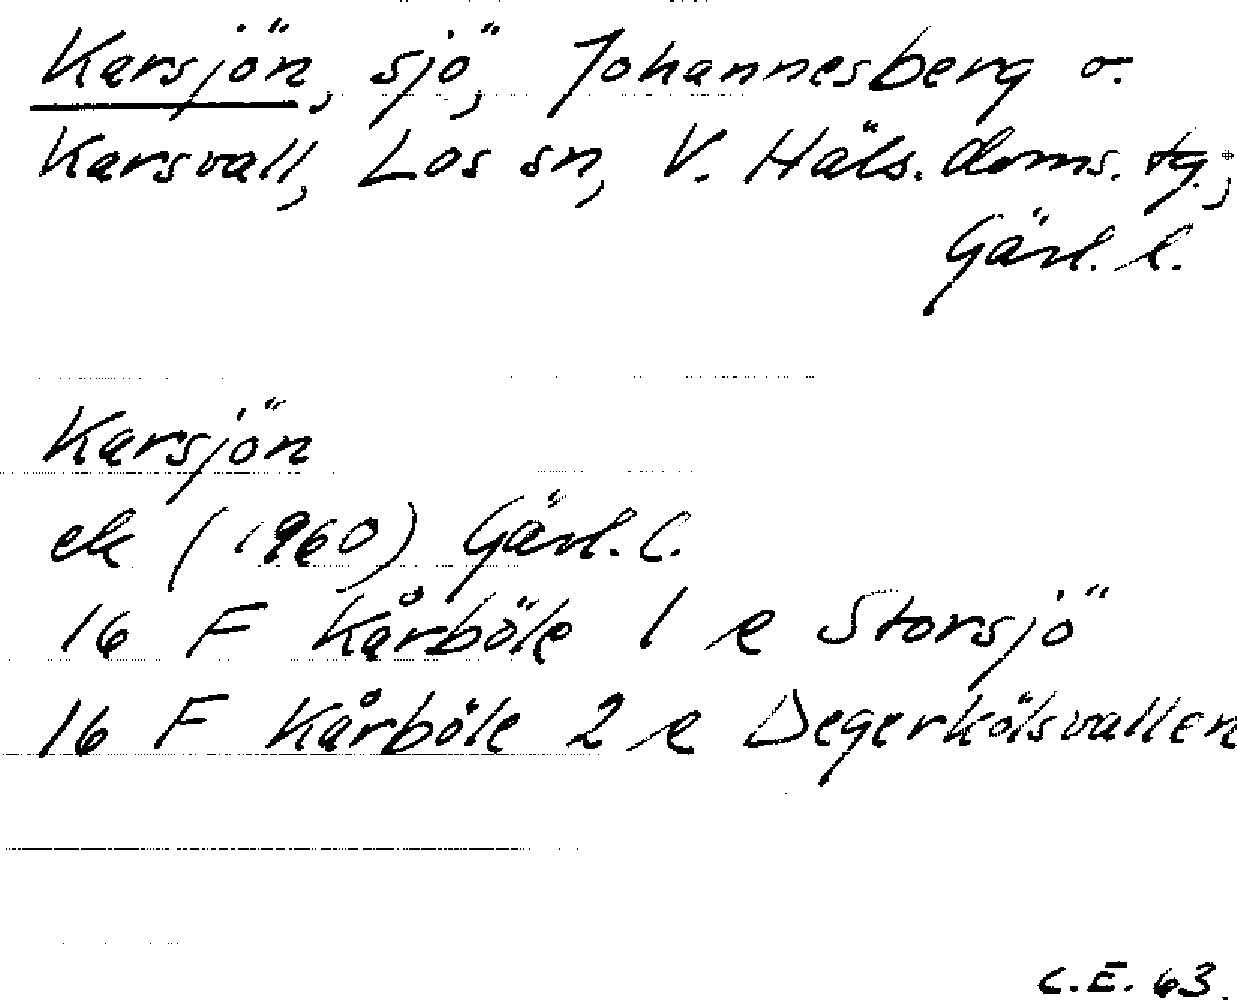 Karsjön, sjö, Johannesberg o.
Karsvall, Los sn, V. Häls. doms. tg.,
Gävl. l.
Karsjön
ek (1960) Gävl. l.
16 F Kårböle 1 e Storsjö
16 F Kårböle 2 e Degerkölsvallen
C.E. 63.